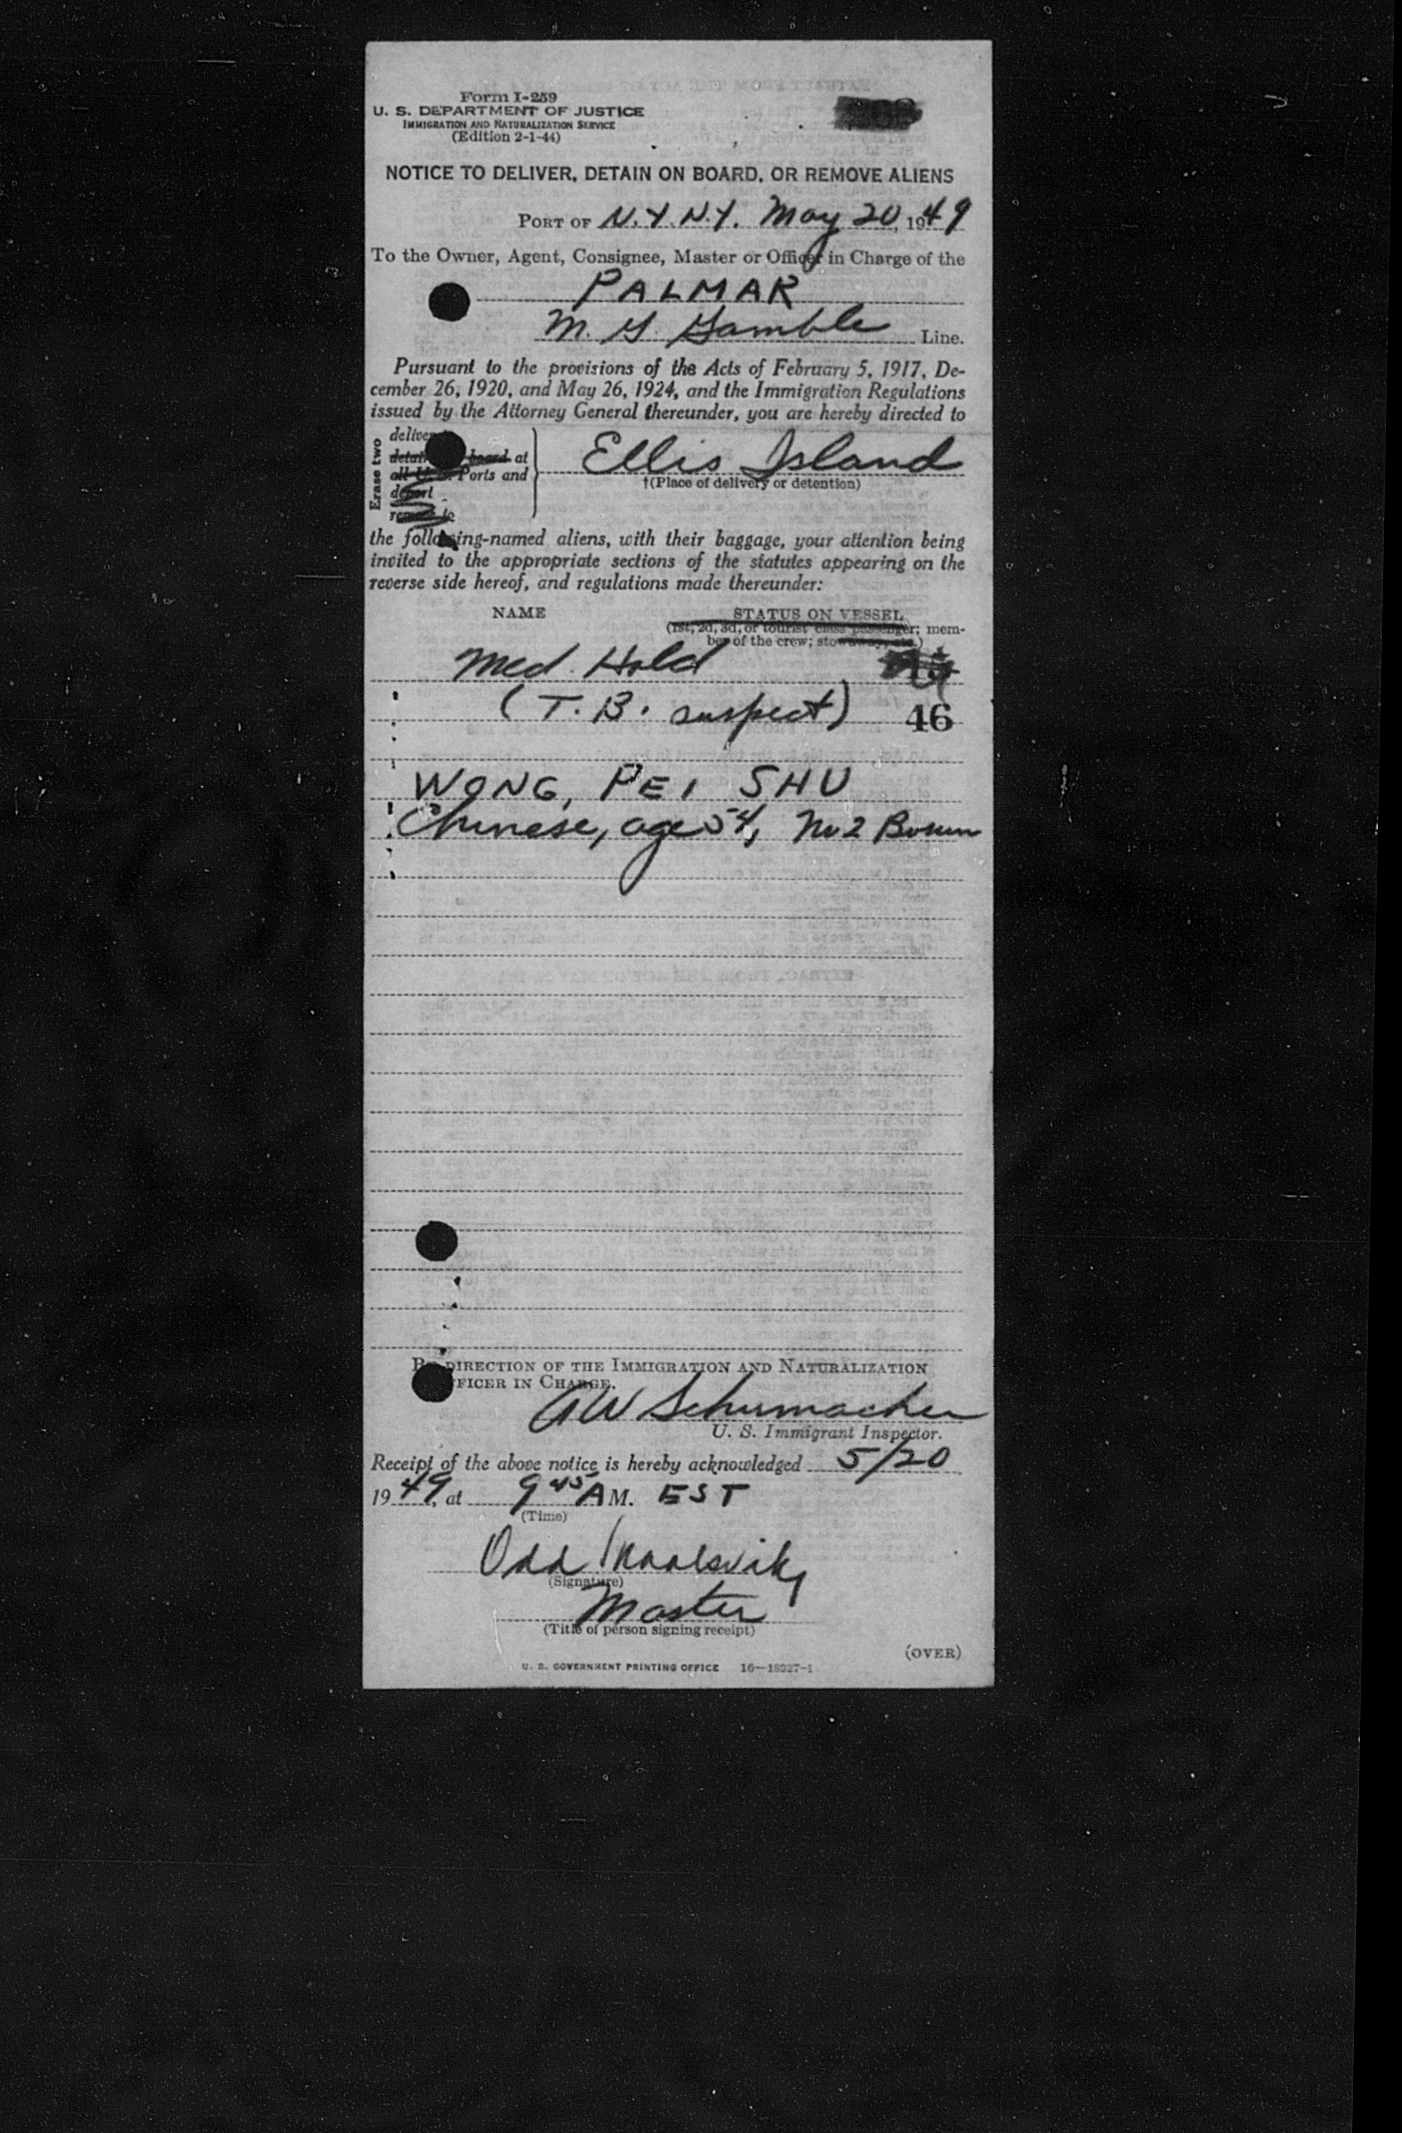 Form I-259
U. S. DEPARTMENT OF JUSTICE
IMMIGRATION AND NATURALIZATION SERVICE
(Edition 2-1-44)
NOTICE TO DELIVER, DETAIN ON BOARD, OR REMOVE ALIENS
PORT OF N.Y.N.Y. May 20, 1949
To the Owner, Agent, Consignee, Master or Officer in Charge of the
PALMAR
M. G. Gamble Line.
Pursuant to the provisions of the Acts of February 5, 1917, De-
cember 26, 1920, and May 26, 1924, and the Immigration Regulations
issued by the Attorney General thereunder, you are hereby directed to
Erase two
board at
Ports and
Ellis Island
†(Place of delivery or detention)
the following-named aliens, with their baggage, your attention being
invited to the appropriate sections of the statutes appearing on the
reverse side hereof, and regulations made thereunder:
NAME STATUS ON VESSEL
(1st, 2d, 3d, or tourist class passenger; mem-
ber of the crew; stowaway, etc.)
Med. Hold
(T. B. suspect) 46
WONG, PEI SHU
Chinese, age 54, No 2 Bosun
BY DIRECTION OF THE IMMIGRATION AND NATURALIZATION
OFFICER IN CHARGE.
AW Schumacher
U. S. Immigrant Inspector.
Receipt of the above notice is hereby acknowledged 5/20
1949, at 9 45 A M. EST
(Time)
Odd
(Signature)
Master
(Title of person signing receipt)
(OVER)
U. S. GOVERNMENT PRINTING OFFICE 16—18327-1